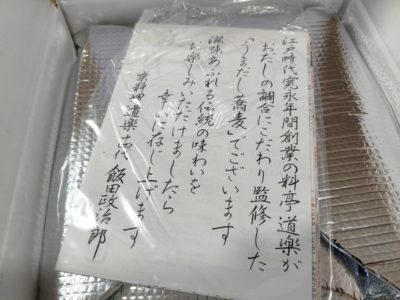 江戸時代寛永年間創業の料亭道楽が
おだしの調合にこだわり監修した
「うまだし蕎麦」でございます
滋味あふれる伝統の味わいを
お楽しみいただけましたら
幸いに存じ上げます
京料理 道楽 十四代 飯田政治郎